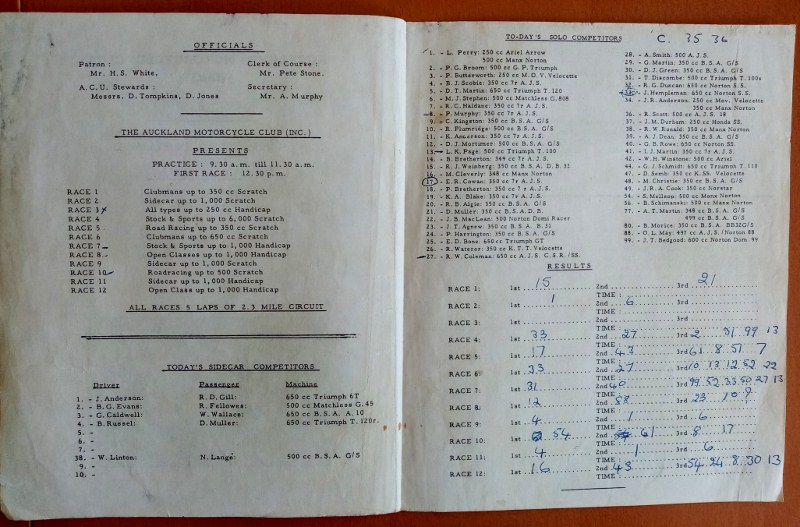 OFFICIALS
Patron :
Mr. H.S. White,
Clerk of Course :
Mr. Pete Stone.
A.C.U. Stewards :
Messrs. D. Tompkins, D. Jones
Secretary :
Mr. A. Murphy
THE AUCKLAND MOTORCYCLE CLUB (INC.)
PRESENTS
PRACTICE : 9.30 a.m. till 11.30 a.m.
FIRST RACE : 12.30 p.m.
RACE 1 Clubmans up to 350 cc Scratch
RACE 2 Sidecar up to 1,000 Scratch
RACE 3 All types up to 250 cc Handicap
RACE 4 Stock & Sports up to 6,000 Scratch
RACE 5 Road Racing up to 350 cc Scratch
RACE 6 Clubmans up to 650 cc Scratch
RACE 7 Stock & Sports up to 1,000 Handicap
RACE 8 Open Classes up to 1,000 Handicap
RACE 9 Sidecar up to 1,000 Scratch
RACE 10 Roadracing up to 500 Scratch
RACE 11 Sidecar up to 1,000 Handicap
RACE 12 Open Class up to 1,000 Handicap
ALL RACES 5 LAPS OF 2.3 MILE CIRCUIT
TODAY'S SIDECAR COMPETITORS
Driver Passenger Machine
1. - J. Anderson: R.D. Gill: 650 cc Triumph 6T
2. - B.G. Evans: R. Fellowes: 500 cc Matchless G.45
3. - G. Caldwell: W. Wallace: 650 cc B.S.A. A.10
4. - B. Russel: D. Muller: 650 cc Triumph T.120r.
5. -
6. -
7. -
38. - W. Linton: N. Lange: 500 cc B.S.A. G/S
9. -
10. -
TO-DAY'S SOLO COMPETITORS
C. 35 36
1. - L. Perry: 250 cc Ariel Arrow
500 cc Manx Norton
2. - P.G. Broom: 500 cc G.P. Triumph
3. - P. Butterworth: 250 cc M.O.V. Velocette
4. - B.J. Scobie: 350 cc 7r A.J.S.
5. - D.T. Martin: 650 cc Triumph T.120
6. - M.J. Stephen: 500 cc Matchless G.80S
7. - R.C. Haldane: 350 cc 7r A.J.S.
8. - P. Murphy: 350 cc 7r A.J.S.
9. - C. Kingston: 350 cc B.S.A. G/S
10. - R. Plumridge: 500 cc Manx Norton
11. - K. Anderson: 350 cc 7r A.J.S.
12. - D.J. Mortimer: 500 cc B.S.A. G/S
13. - L.K. Page: 500 cc Triumph T.100
14. - B. Bretherton: 349 cc 7r A.J.S.
15. - R.J. Weinberg: 350 cc B.S.A. D.B. 32
16. - M. Cleverly: 348 cc Manx Norton
17. - E.R. Cowan: 350 cc 7r A.J.S.
18. - P. Bretherton: 350 cc 7r A.J.S.
19. - K.A. Blake: 350 cc 7r A.J.S.
20. - R.D. Algie: 500 cc B.S.A. G/S
21. - D. Muller: 350 cc B.S.A D.B.
22. - J.B. MacLean: 500 Norton Domi Racer
23. - J.T. Agnew: 350 cc B.S.A.
24. - P. Herrington: 350 cc B.S.A. G/S
25. - E.D. Bone: 650 cc Triumph GT
26. - R. Waterer: 350 cc K.T.T. Velocette
27. - R.W. Coleman: 650 cc A.J.S. C.S.R./SS.
28. - A. Smith: 500 A.J.S.
29. - G. Martin: 350 cc B.S.A. G/S
30. - D.J. Green: 350 cc B.S.A. G/S
31. - T. Discombe: 500 cc Triumph T.100s
32. - R.G. Duncan: 650 cc Norton S.S.
33. - J. Hempleman: 650 cc Norton S.S.
34. - J.R. Anderson: 250 cc Mov. Velocette
350 cc Manx Norton
36. - R. Scott: 500 cc A.J.S. 18
37. - J.M. Durham: 250 cc Honda SS.
38. - R.W. Ronald: 350 cc Manx Norton
39. - A.J. Dean: 350 cc B.S.A. G/S
40. - G.B. Rowe: 650 cc Norton SS.
41. - I.J. Martin: 350 cc 7r A.J.S.
42. - W.H. Winstone: 500 cc Ariel
44. - G.J. Schmidt: 650 cc Triumph T.110
47. - D. Semb: 350 cc K.SS. Velocette
48. - M. Christie: 350 cc B.S.A. G/S
49. - J.B.A. Cook: 350 cc Norstar
54. - E. McLeon: 500 cc Manx Norton
56. - B. Schimanski: 500 cc Manx Norton
77. - A.T. Martin: 348 cc B.S.A. G/S
499 cc B.S.A. G/S
80. - B. Morice: 350 cc B.S.A. BB32G/S
88. - O.L. May: 497 cc A.J.S./Norton 88
99. - J.T. Bedgood: 600 cc Norton Dom. 99
RESULTS
RACE 1: 1st 15 2nd 3rd 21
TIME :
RACE 2: 1st 1 2nd 6 3rd
TIME :
RACE 3: 1st 2nd 3rd
TIME :
RACE 4: 1st 33 2nd 27 3rd 2 31 99 13
TIME :
RACE 5: 1st 17 2nd 43 3rd 61 8 51 7
TIME :
RACE 6: 1st 23 2nd 27 3rd 10 13 12 52 22
TIME :
RACE 7: 1st 31 2nd 40 3rd 99 52 33 50 27 13
TIME :
RACE 8: 1st 12 2nd 58 3rd 23 10 9
TIME :
RACE 9: 1st 4 2nd 1 3rd 6
TIME :
RACE 10: 1st 54 2nd 61 3rd 8 17
TIME :
RACE 11: 1st 4 2nd 1 3rd 6
TIME :
RACE 12: 1st 16 2nd 43 3rd 54 34 8 30 13
TIME :